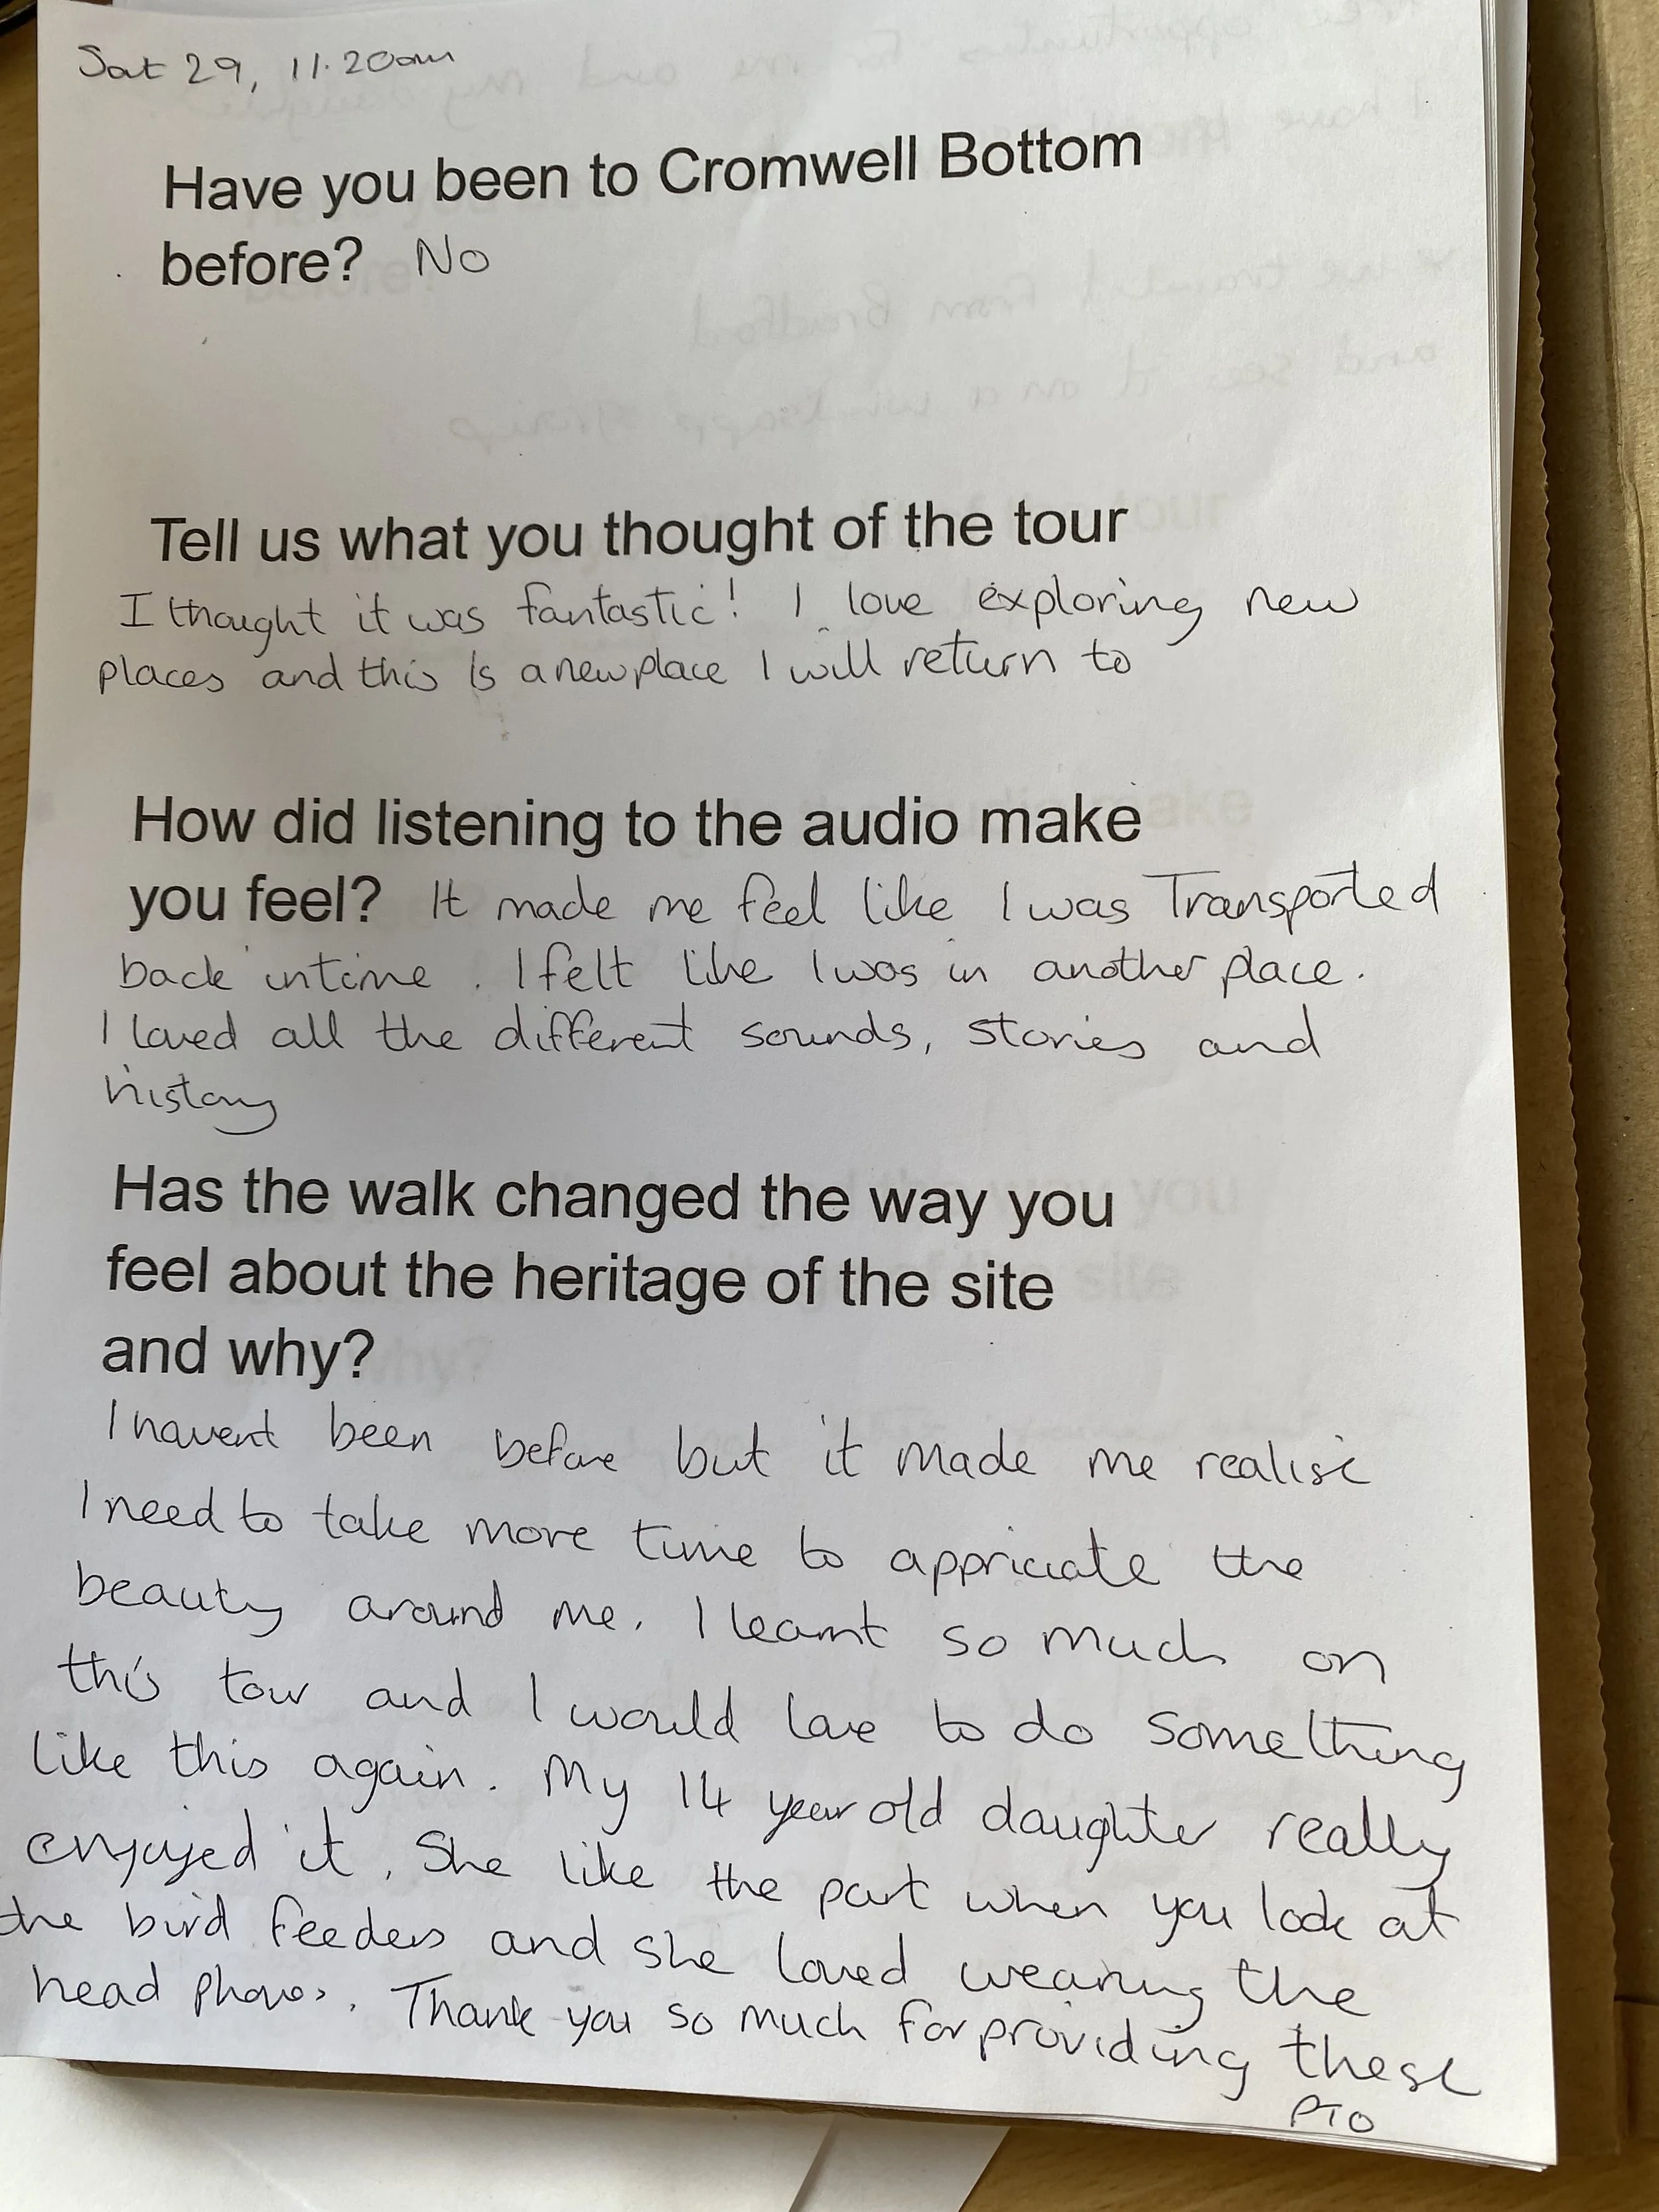 Sat 29, 11.20am
Have you been to Cromwell Bottom
before? No
Tell us what you thought of the tour
I thought it was fantastic! I love exploring new
places and this is a new place I will return to
How did listening to the audio make
you feel? It made me feel like I was Transported
back in time. I felt like I was in another place.
I loved all the different sounds, stories and
history
Has the walk changed the way you
feel about the heritage of the site
and why?
I havent been before but it made me realise
I need to take more time to appriciate the
beauty around me. I learnt so much on
this tour and I would love to do something
like this again. My 14 year old daughter really
enjoyed it. She like the part when you look at
the bird feeders and she loved wearing the
head phones. Thank you so much for providing these
PTO